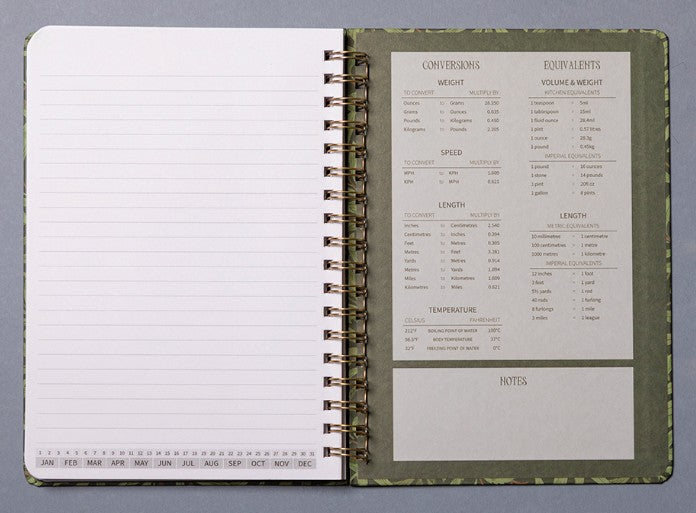 1 2 3 4 5 6 7 8 9 10 11 12 13 14 15 16 17 18 19 20 21 22 23 24 25 26 27 28 29 30 31
JAN FEB MAR APR MAY JUN JUL AUG SEP OCT NOV DEC
CONVERSIONS
WEIGHT
TO CONVERT MULTIPLY BY
Ounces to Grams 28.350
Grams to Ounces 0.035
Pounds to Kilograms
Kilograms to Pounds 2.205
SPEED
TO CONVERT MULTIPLY BY
MPH to KPH
KPH to MPH 0.621
LENGTH
TO CONVERT MULTIPLY BY
Inches to Centimetres 2.540
Centimetres to Inches 0.394
Feet to Metres 0.305
Metres to Feet 3.281
Yards to Metres 0.914
Metres to Yards 1.094
Miles to Kilometres 1.609
Kilometres to Miles 0.621
TEMPERATURE
CELSIUS FAHRENHEIT
212°F BOILING POINT OF WATER 100°C
BODY TEMPERATURE 37°C
32°F FREEZING POINT OF WATER 0°C
EQUIVALENTS
VOLUME & WEIGHT
KITCHEN EQUIVALENTS
1 teaspoon = 5ml
1 tablespoon = 15ml
1 fluid ounce = 28.4ml
1 pint = 0.57 litres
1 ounce = 28.3g
1 pound = 0.45kg
IMPERIAL EQUIVALENTS
1 pound = 16 ounces
1 stone = 14 pounds
1 pint = 20fl oz
1 gallon = 8 pints
LENGTH
METRIC EQUIVALENTS
10 millimetres = 1 centimetre
100 centimetres = 1 metre
1000 metres = 1 kilometre
IMPERIAL EQUIVALENTS
12 inches = 1 foot
3 feet = 1 yard
5½ yards = 1 rod
40 rods = 1 furlong
8 furlongs = 1 mile
3 miles = 1 league
NOTES